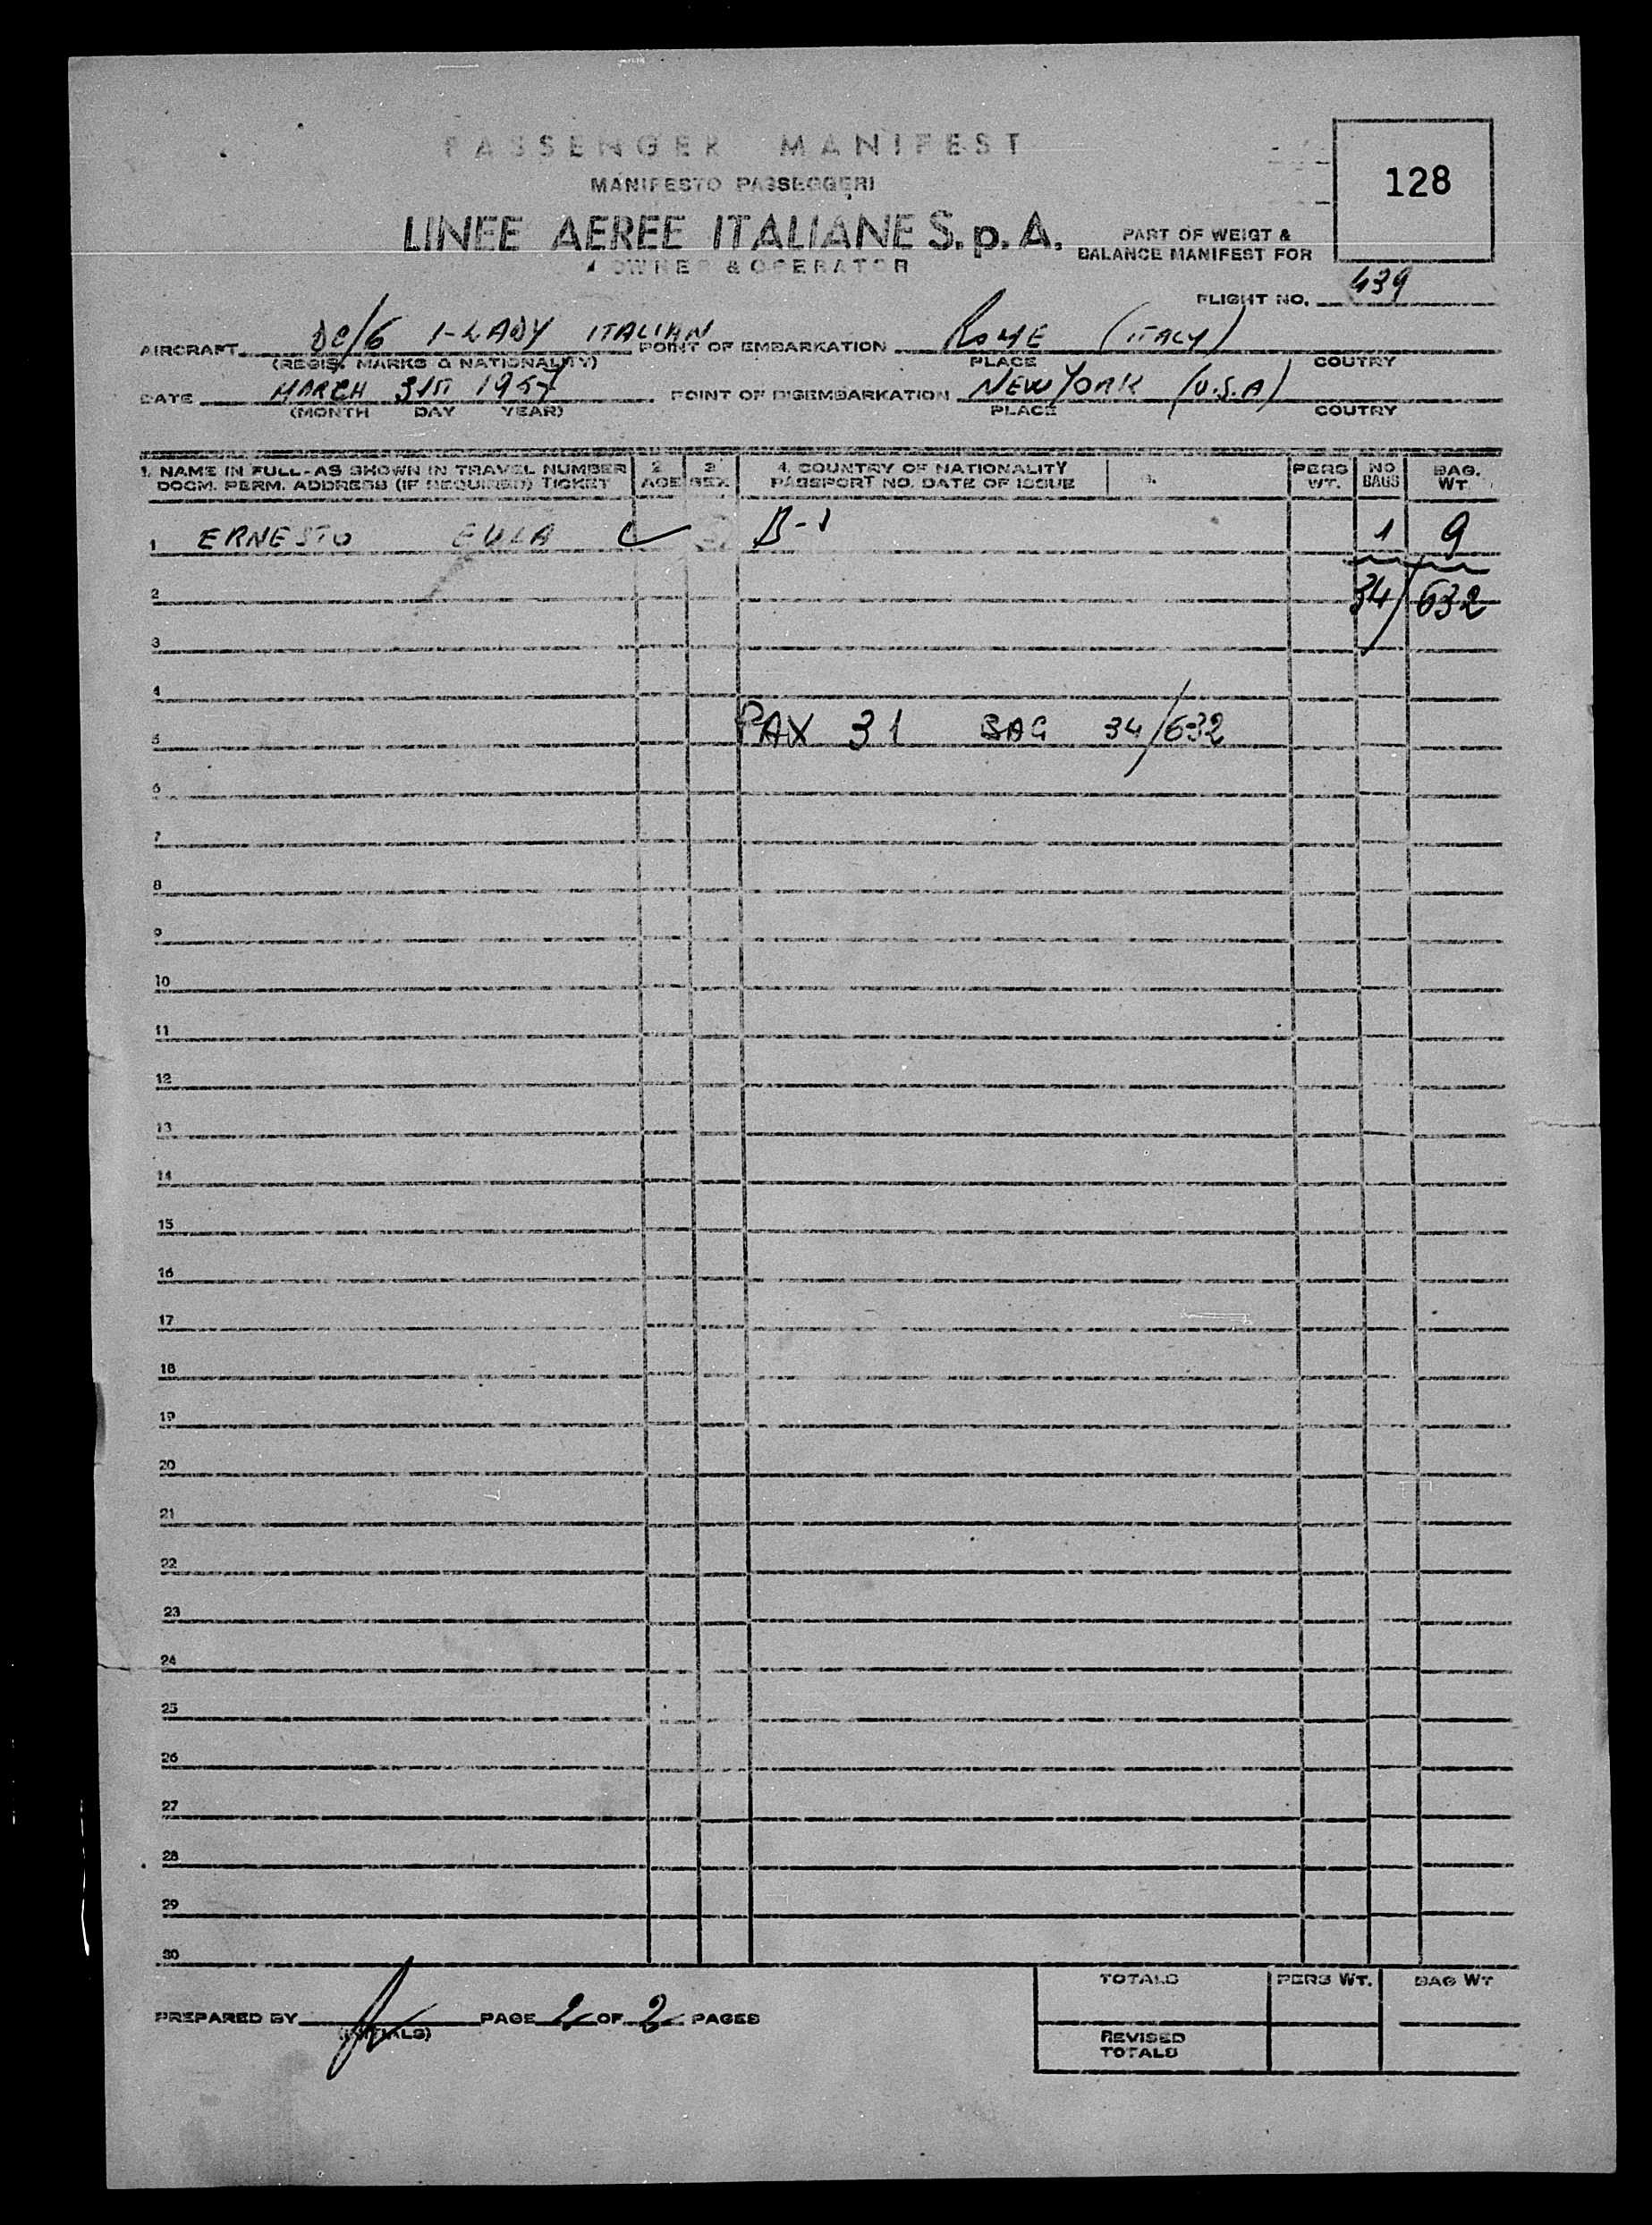 PASSENGER MANIFEST
MANIFESTO PASSEGGERI
128
LINEE AEREE ITALIANE S.p.A.
PART OF WEIGT &
BALANCE MANIFEST FOR
OWNER & OPERATOR
FLIGHT NO. 439
AIRCRAFT DC/6 I-LADY ITALIAN POINT OF EMBARKATION ROME (ITALY)
(REGIS. MARKS & NATIONALITY) PLACE COUTRY
DATE MARCH 31st 1957 POINT OF DISEMBARKATION NEW YORK (U.S.A)
(MONTH DAY YEAR) PLACE COUTRY
1. NAME IN FULL-AS SHOWN IN TRAVEL NUMBER 2 3 4. COUNTRY OF NATIONALITY 5. PERS NO BAG.
DOCM. PERM. ADDRESS (IF REQUIRED) TICKET AGE SEX PASSPORT NO. DATE OF ISSUE WT. BAGS WT.
1 ERNESTO EULA B-1 1 9
2 34/632
3
4
5 PAX 31 BAG 34/632
6
7
8
9
10
11
12
13
14
15
16
17
18
19
20
21
22
23
24
25
26
27
28
29
30
TOTALS PERS WT. BAG WT
PREPARED BY PAGE 2 OF 2 PAGES
(INITIALS)
REVISED
TOTALS